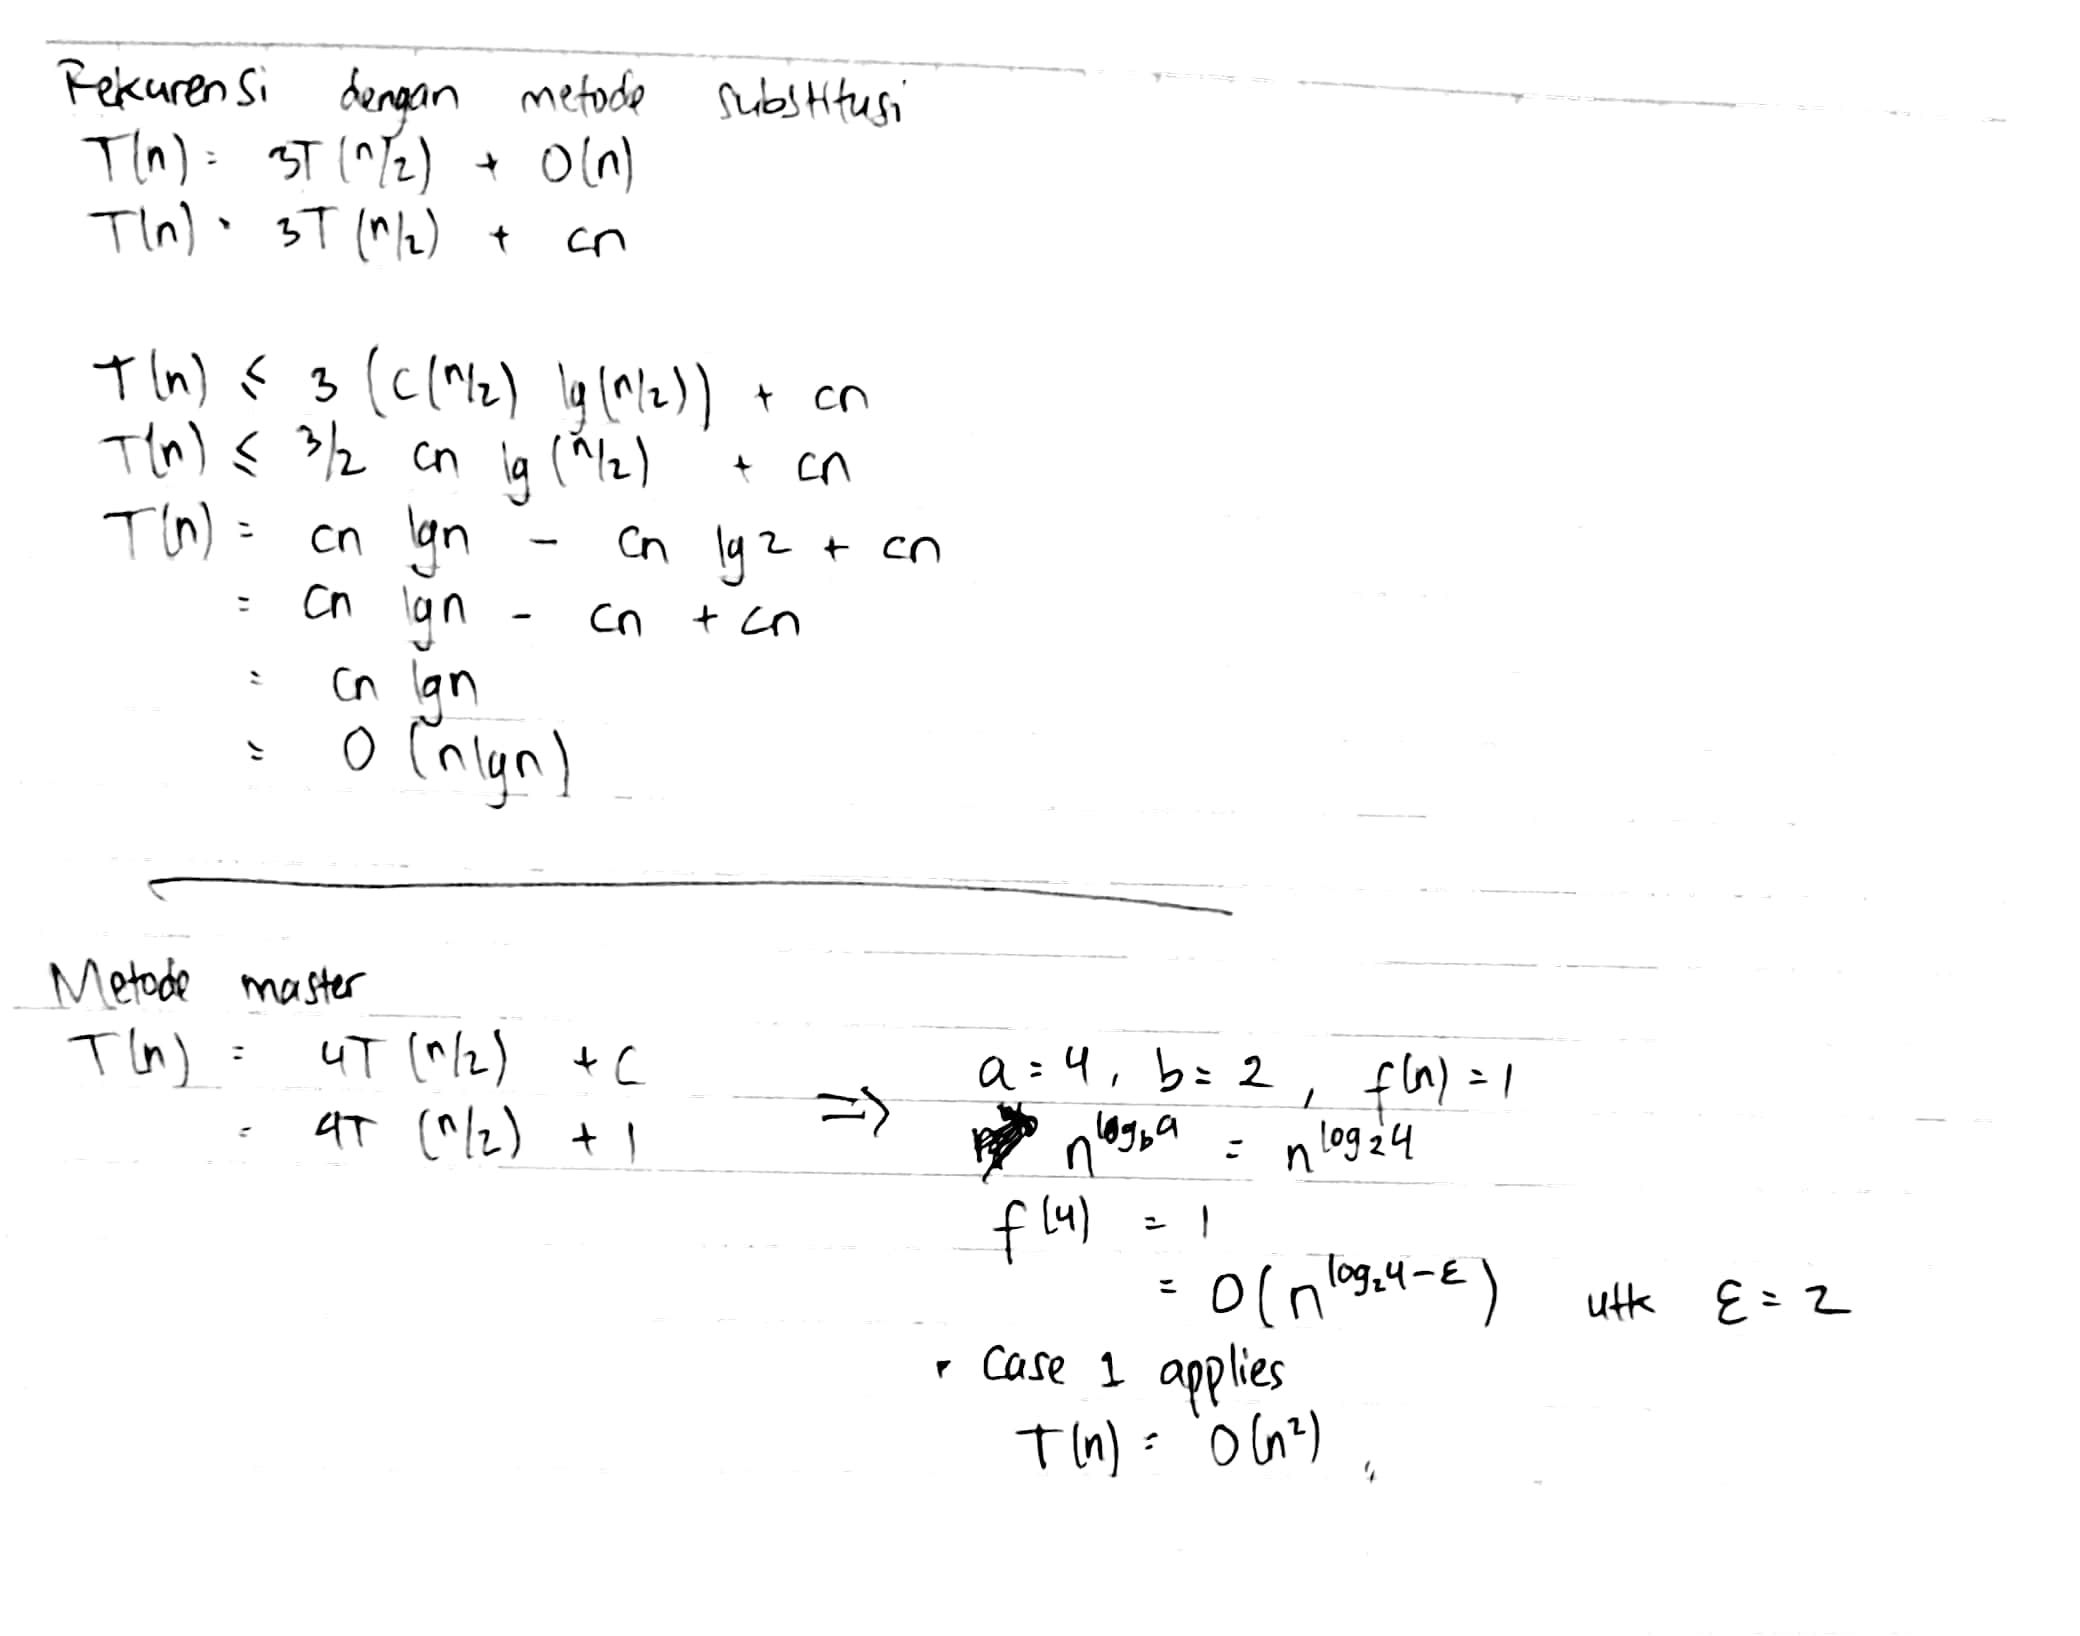 Rekurensi dengan metode substitusi
T(n) = 3T(n/2) + O(n)
T(n) = 3T(n/2) + cn
T(n) ≤ 3(c(n/2) lg(n/2)) + cn
T(n) ≤ 3/2 cn lg(n/2) + cn
T(n) = cn lgn - cn lg2 + cn
= cn lgn - cn + cn
= cn lgn
= O(nlgn)
Metode master
T(n) = 4T(n/2) + c
= 4T(n/2) + 1
⇒ a = 4, b = 2, f(n) = 1
n^log_b a = n^log_2 4
f(4) = 1
= O(n^log_2 4-ε) utk ε = 2
• Case 1 applies
T(n) = O(n²)